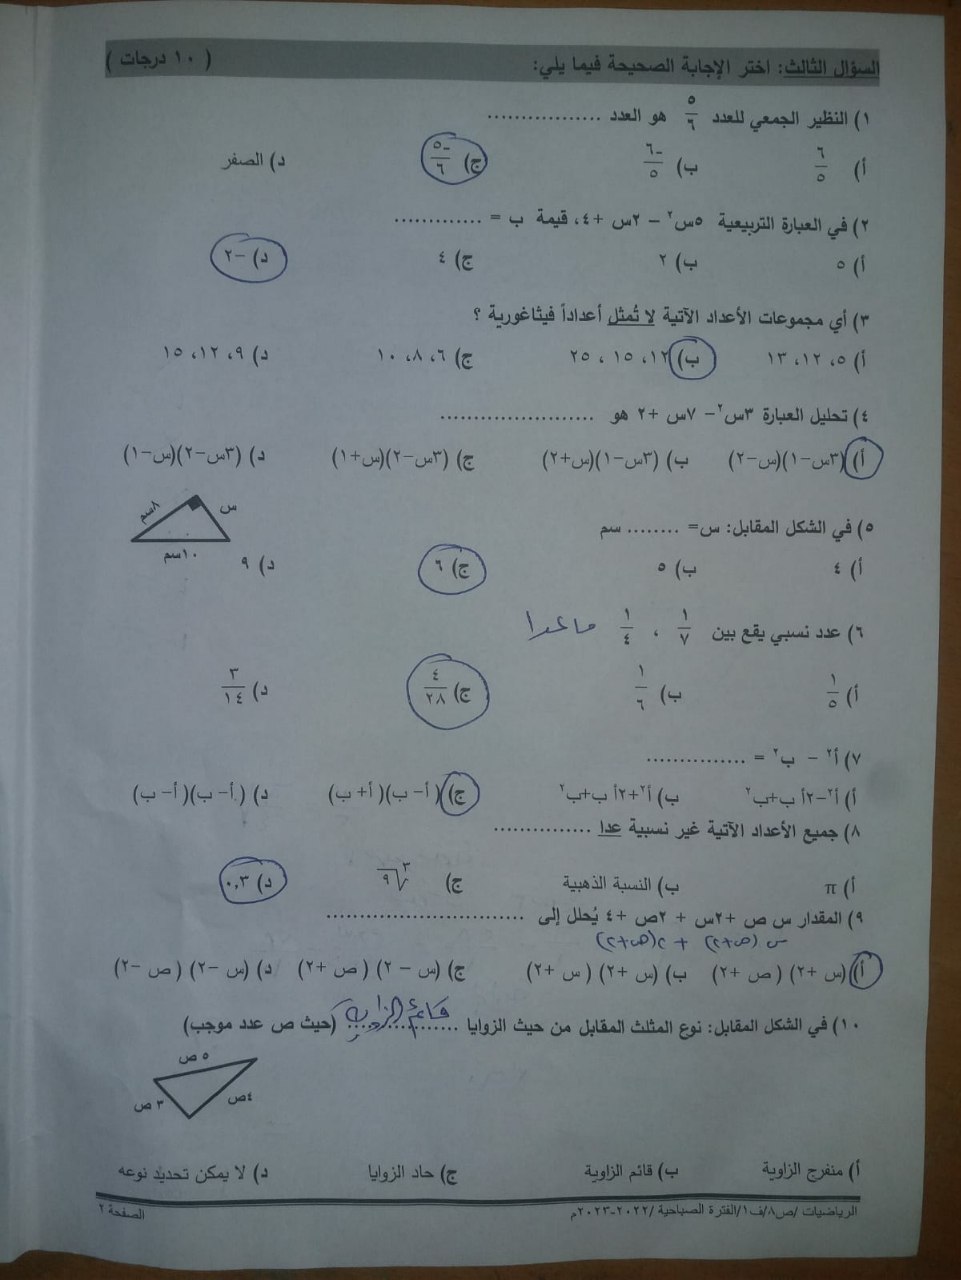 السؤال الثالث: اختر الإجابة الصحيحة فيما يلي: ( ١٠ درجات )
١) النظير الجمعي للعدد ٥/٦ هو العدد .................
أ) ٦/٥ ب) -٦/٥ ج) -٥/٦ د) الصفر
٢) في العبارة التربيعية ٥س٢ – ٢س +٤، قيمة ب = .............
أ) ٥ ب) ٢ ج) ٤ د) –٢
٣) أي مجموعات الأعداد الآتية لا تُمثل أعداداً فيثاغورية ؟
أ) ٥، ١٢، ١٣ ب) ١٢، ١٥ ، ٢٥ ج) ٦، ٨، ١٠ د) ٩، ١٢، ١٥
٤) تحليل العبارة ٣س٢– ٧س +٢ هو .......................
أ) (٣س–١)(س–٢) ب) (٣س–١)(س+٢) ج) (٣س–٢)(س+١) د) (٣س–٢)(س–١)
٥) في الشكل المقابل: س= ........ سم
س
٨سم
١٠سم
أ) ٤ ب) ٥ ج) ٦ د) ٩
٦) عدد نسبي يقع بين ١/٧ ، ١/٤ ما عدا
أ) ١/٥ ب) ١/٦ ج) ٤/٢٨ د) ٣/١٤
٧) أ٢ – ب٢ = ...............
أ) أ٢–٢أ ب+ب٢ ب) أ٢+٢أ ب+ب٢ ج) (أ– ب)(أ+ ب) د) (أ– ب)(أ– ب)
٨) جميع الأعداد الآتية غير نسبية عدا ...............
أ) π ب) النسبة الذهبية ج) ٣√٩ د) ٠,٣
٩) المقدار س ص +٢س + ٢ص +٤ يُحلل إلى .............................
س (ص+٢) + ٢(ص+٢)
أ) (س +٢) (ص +٢) ب) (س +٢) (س +٢) ج) (س – ٢) (ص +٢) د) (س –٢) (ص –٢)
١٠) في الشكل المقابل: نوع المثلث المقابل من حيث الزوايا قائم الزاوية (حيث ص عدد موجب)
٥ ص
٤ص
٣ ص
أ) منفرج الزاوية ب) قائم الزاوية ج) حاد الزوايا د) لا يمكن تحديد نوعه
الرياضيات /ص٨/ف١/الفترة الصباحية /٢٠٢٢-٢٠٢٣م الصفحة ٢